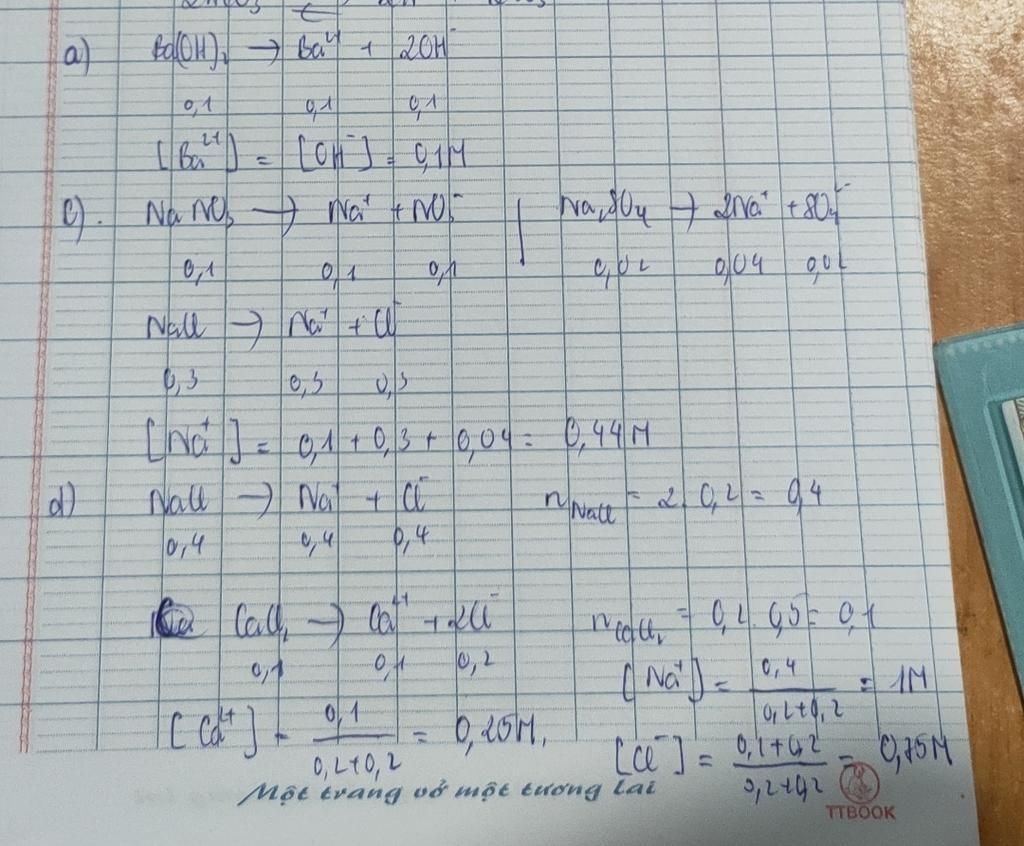 a) Ba(OH)₂ → Ba²⁺ + 2OH⁻
0,1 0,1 0,1
[Ba²⁺] = [OH⁻] = 0,1M
c). NaNO₃ → Na⁺ + NO₃⁻ | Na₂SO₄ → 2Na⁺ + SO₄⁻
0,1 0,1 0,1 0,02 0,04 0,02
NaCl → Na⁺ + Cl⁻
0,3 0,3 0,3
[Na⁺] = 0,1 + 0,3 + 0,04 = 0,44M
d) NaCl → Na⁺ + Cl⁻ n NaCl = 2. 0,2 = 0,4
0,4 0,4 0,4
CaCl₂ → Ca²⁺ + 2Cl⁻ n CaCl₂ = 0,2. 0,5 = 0,1
0,1 0,1 0,2
[Na⁺] = 0,4 / 0,2+0,2 = 1M
[Ca²⁺] = 0,1 / 0,2+0,2 = 0,25M.
[Cl⁻] = 0,1+0,2 / 0,2+0,2 = 0,75M
Một trang vở một tương lai
TTBOOK